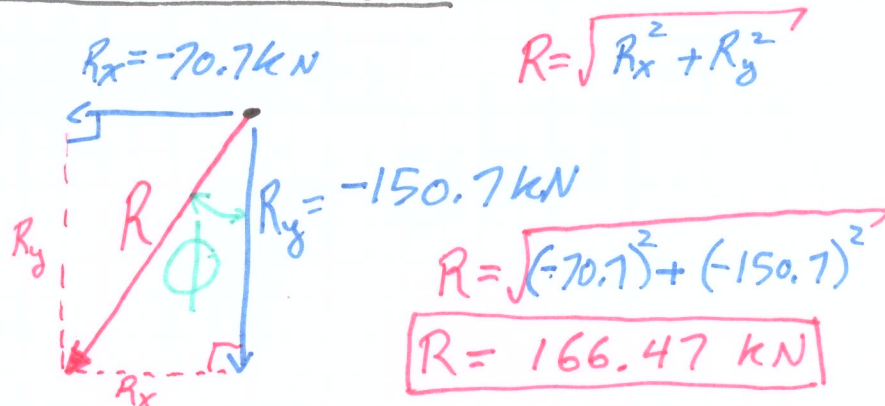 Rx = -70.7 kN
R = √(Rx² + Ry²)
R
Ry
ϕ
Ry = -150.7 kN
Rx
R = √((-70.7)² + (-150.7)²)
R = 166.47 kN